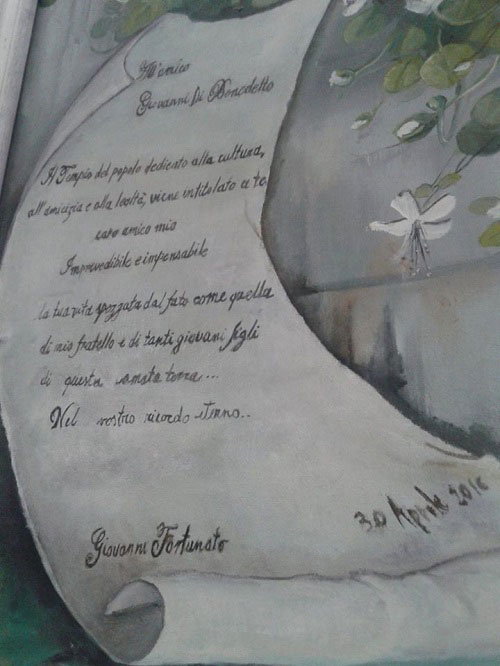 All'amico
Giovanni Di Benedetto
Il Tempio del popolo dedicato alla cultura,
all'amicizia e alla lealtà, viene intitolato a te
caro amico mio
Imprevedibile e impensabile
la tua vita spezzata dal fato come quella
di mio fratello e di tanti giovani figli
di questa amata terra...
Nel vostro ricordo eterno..
30 Aprile 2016
Giovanni Fortunato